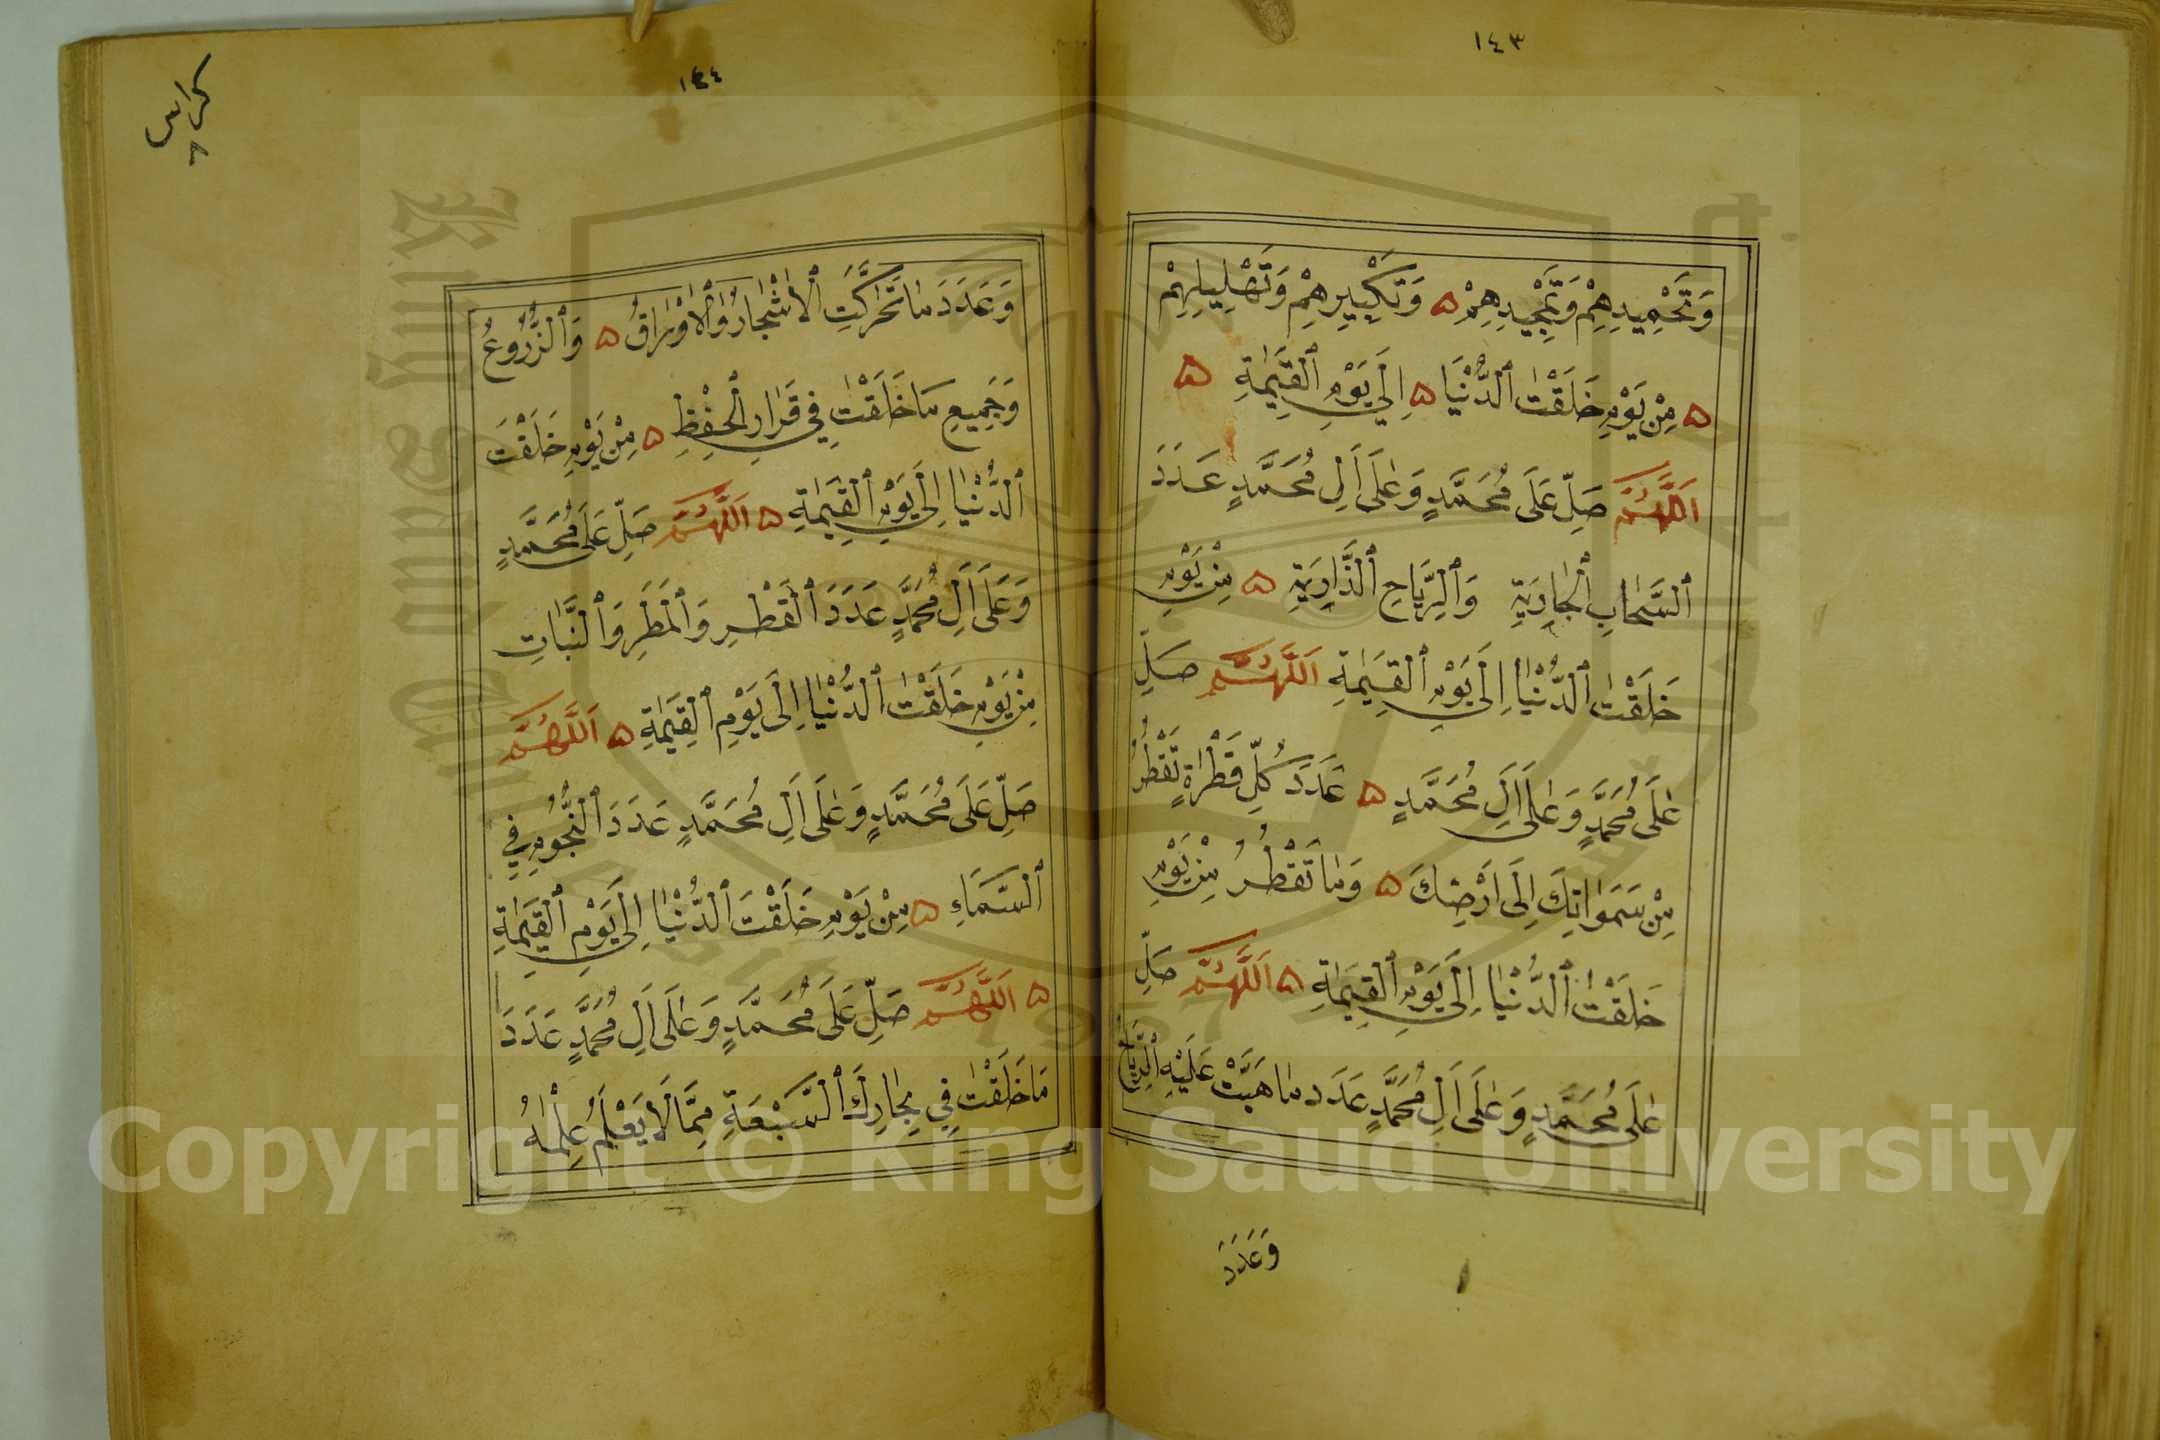 ١٤٣
وَتَحْمِيدِهِمْ وَتَمْجِيدِهِمْ ۞ وَتَكْبِيرِهِمْ وَتَهْلِيلِهِمْ
۞ مِنْ يَوْمِ خَلَقْتَ ٱلدُّنْيَا ۞ اِلَي يَوْمِ ٱلْقِيَمٰةِ ۞
اَللَّهُمَّ صَلِّ عَلَى مُحَمَّدٍ وَعَلَى اَلِ مُحَمَّدٍ عَدَدَ
ٱلسَّحَابِ ٱلْجَارِيَةِ وَٱلرِّيَاحِ ٱلذَّارِيَةِ ۞ مِنْ يَوْمِ
خَلَقْتَ ٱلدُّنْيَا اِلَى يَوْمِ ٱلْقِيَمٰةِ اَللَّهُمَّ صَلِّ
عَلَى مُحَمَّدٍ وَعَلَى اَلِ مُحَمَّدٍ ۞ عَدَدَ كُلِّ قَطْرَةٍ تَقْطُرُ
مِنْ سَمَوَاتِكَ اِلَى اَرْضِكَ ۞ وَمَا تَقْطُرُ مِنْ يَوْمِ
خَلَقْتَ ٱلدُّنْيَا اِلَى يَوْمِ ٱلْقِيَمٰةِ ۞ اَللَّهُمَّ صَلِّ
عَلَى مُحَمَّدٍ وَعَلَى اَلِ مُحَمَّدٍ عَدَد مَا هَبَّتْ عَلَيْهِ ٱلرِّيَاحُ
وَعَدَدَ
١٤٤
كراس
٨
وَعَدَدَ مَا تَحَرَّكَتِ ٱلْاَشْجَارُ وَٱلْاَوْرَاقُ ۞ وَٱلزُّرُوعُ
وَجَمِيعِ مَا خَلَقْتَ فِي قَرَارِ ٱلْحِفْظِ ۞ مِنْ يَوْمِ خَلَقْتَ
ٱلدُّنْيَا اِلَي يَوْمِ ٱلْقِيَمٰةِ ۞ اَللَّهُمَّ صَلِّ عَلَى مُحَمَّدٍ
وَعَلَى اَلِ مُحَمَّدٍ عَدَدَ ٱلْقَطْرِ وَٱلْمَطَرِ وَٱلنَّبَاتِ
مِنْ يَوْمِ خَلَقْتَ ٱلدُّنْيَا اِلَى يَوْمِ ٱلْقِيَمٰةِ ۞ اَللَّهُمَّ
صَلِّ عَلَى مُحَمَّدٍ وَعَلَى اَلِ مُحَمَّدٍ عَدَدَ ٱلنُّجُومِ فِي
ٱلسَّمَاءِ ۞ مِنْ يَوْمِ خَلَقْتَ ٱلدُّنْيَا اِلَى يَوْمِ ٱلْقِيَمٰةِ
۞ اَللَّهُمَّ صَلِّ عَلَى مُحَمَّدٍ وَعَلَى اَلِ مُحَمَّدٍ عَدَدَ
مَا خَلَقْتَ فِي بِحَارِكَ ٱلسَّبْعَةِ مِمَّا لَا يَعْلَمُ عِلْمَهُ
Copyright © King Saud University